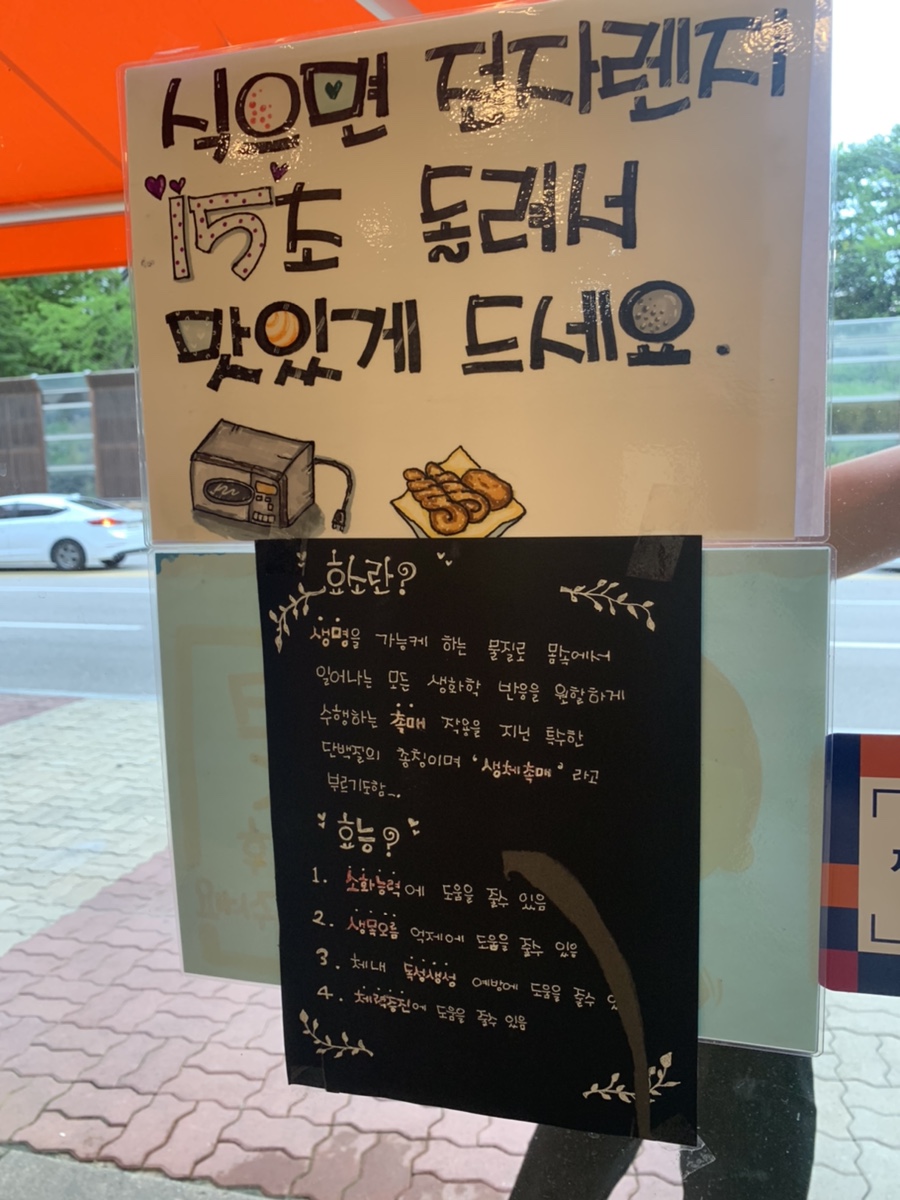 식으면 전자렌지
15초 돌려서
맛있게 드세요.
효소란?
생명을 가능케 하는 물질로 몸속에서
일어나는 모든 생화학 반응을 원할하게
수행하는 촉매 작용을 지닌 특수한
단백질의 총칭이며 '생체촉매' 라고
부르기도함_.
효능?
1. 소화능력에 도움을 줄수 있음
2. 생목오름 억제에 도움을 줄수 있음
3. 체내 독성생성 예방에 도움을 줄수 있
4. 체력증진에 도움을 줄수 있음